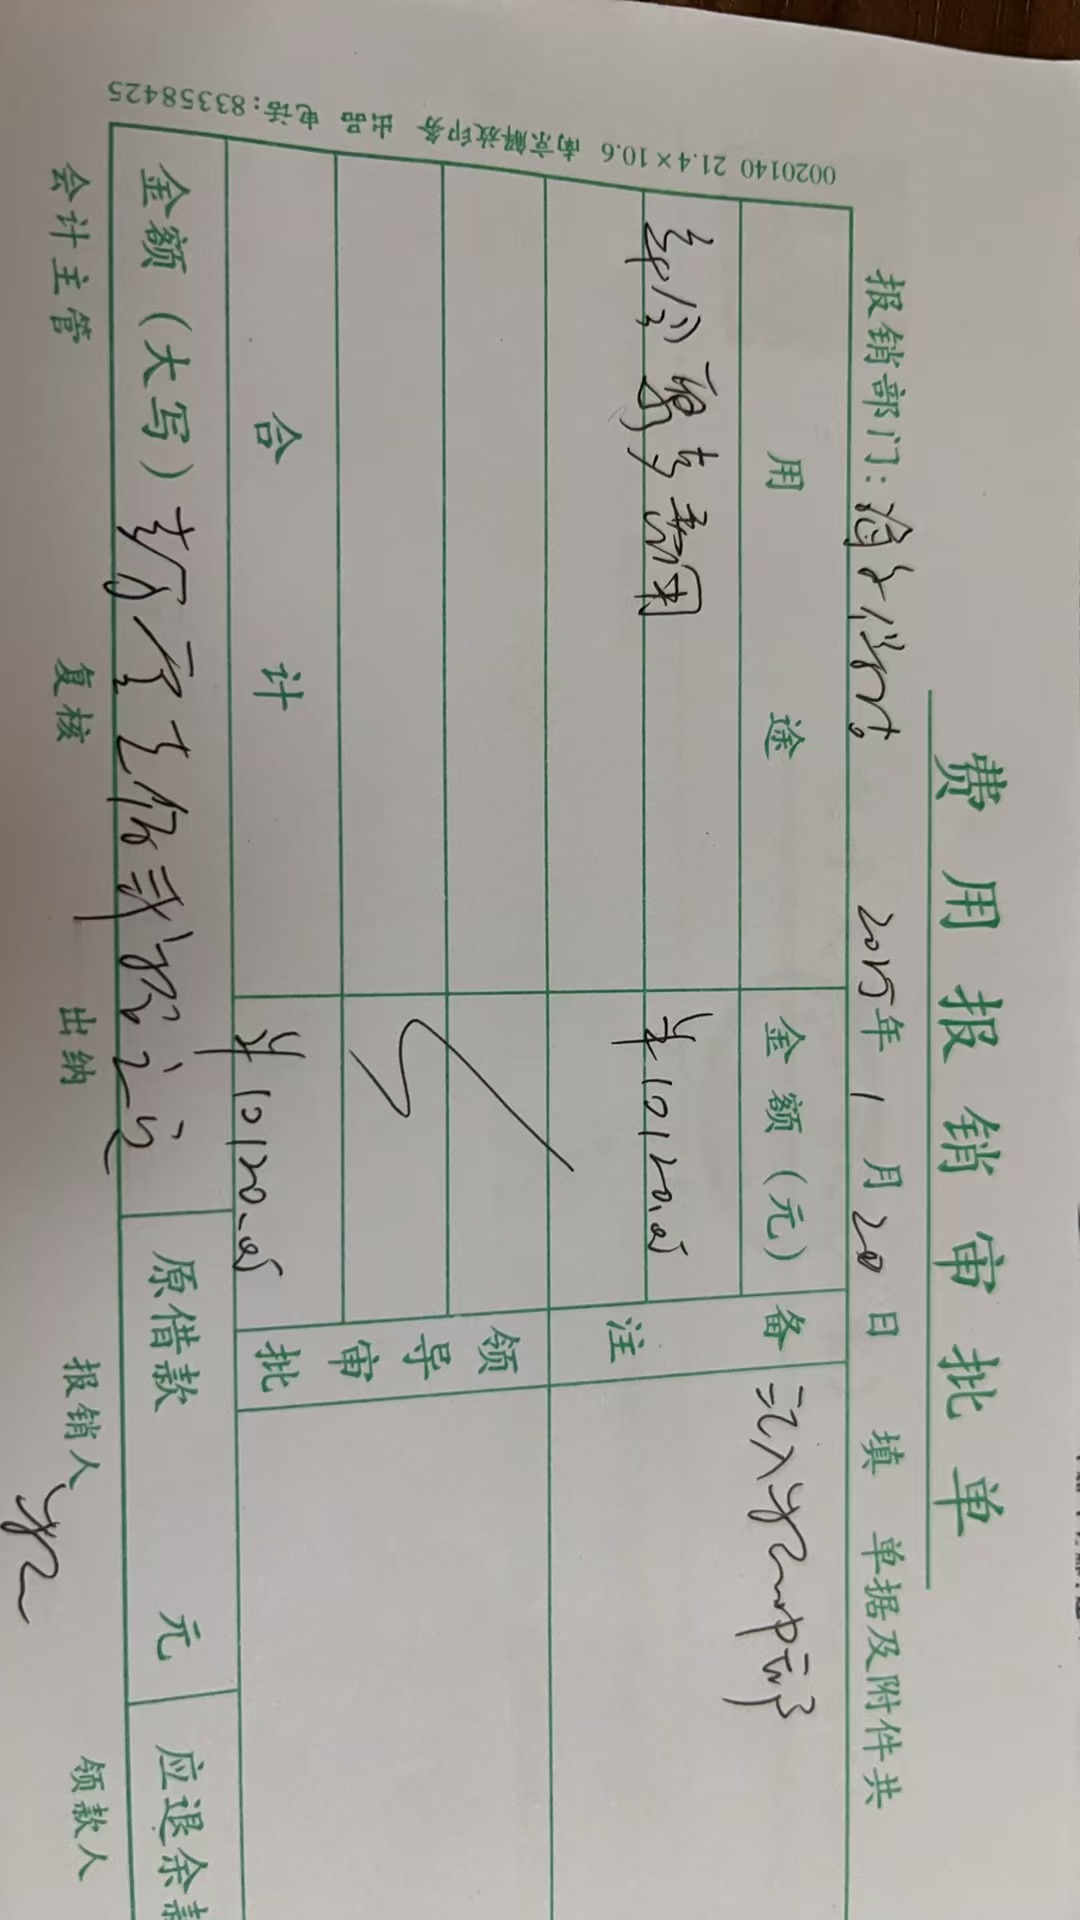 费用报销审批单
报销部门: 2025年1月20日 填 单据及附件共
用途 金额(元) 备注
年会 费用 ¥10120.05
领导审批
合计 ¥10120.05
金额(大写) 壹万零壹佰贰拾 原借款 元 应退余款
会计主管 复核 出纳 报销人 领款人
0020140 21.4×10.6 南京解放印务 出品 电话:83358425